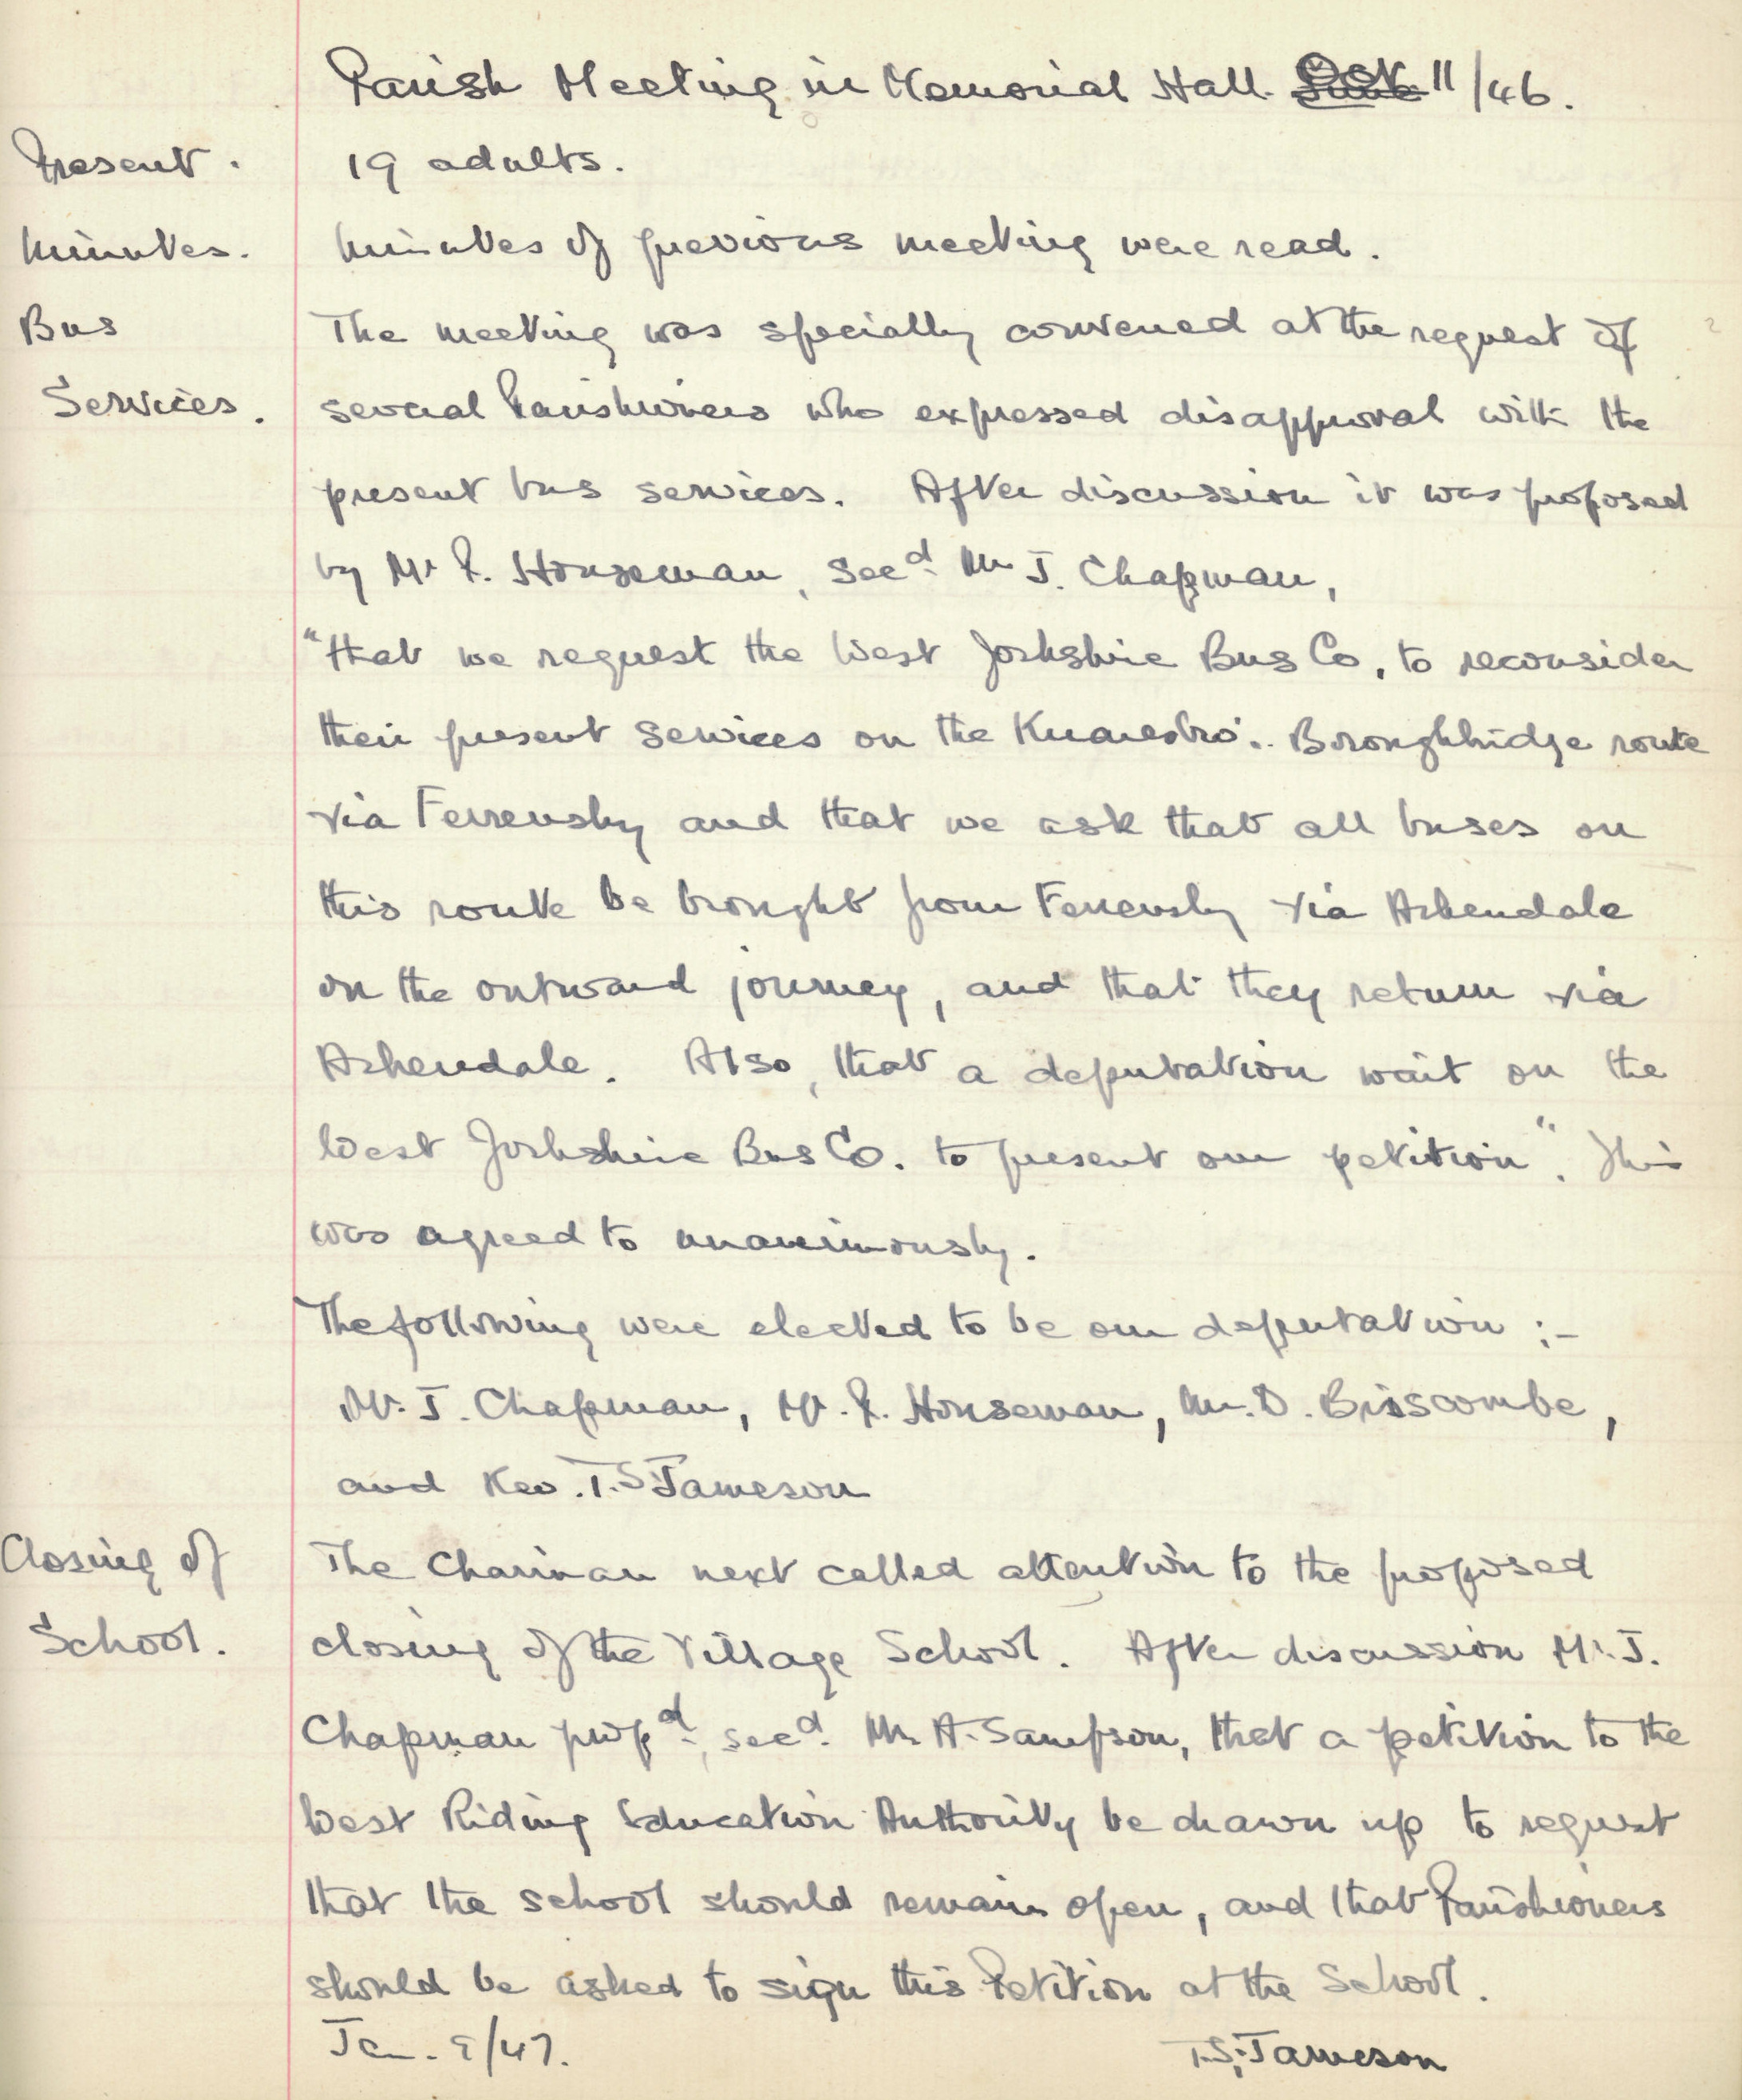 Parish Meeting in Memorial Hall. Oct 11/46.
Present. 19 adults.
Minutes. Minutes of previous meeting were read.
Bus The meeting was specially convened at the request of
Services. several Parishioners who expressed disapproval with the
present bus services. After discussion it was proposed
by Mr F. Houseman, Secd. Mr J. Chapman,
"that we request the West Yorkshire Bus Co, to reconsider
their present services on the Knaresbro'.. Boroughbridge route
via Ferrensby and that we ask that all buses on
this route be brought from Ferrensby via Arkendale
on the outward journey, and that they return via
Arkendale. Also, that a deputation wait on the
West Yorkshire Bus Co. to present our petition". This
was agreed to unanimously.
The following were elected to be our deputation :-
Mr. J. Chapman, Mr. F. Houseman, Mr. D. Bisscombe,
and Rev. T.S Jameson
Closing of The Chairman next called attention to the proposed
School. closing of the Village School. After discussion Mr. J.
Chapman propd., secd. Mr A. Sampson, that a petition to the
West Riding Education Authority be drawn up to request
that the school should remain open, and that Parishioners
should be asked to sign this Petition at the School.
Jan. 9/47. T.S. Jameson